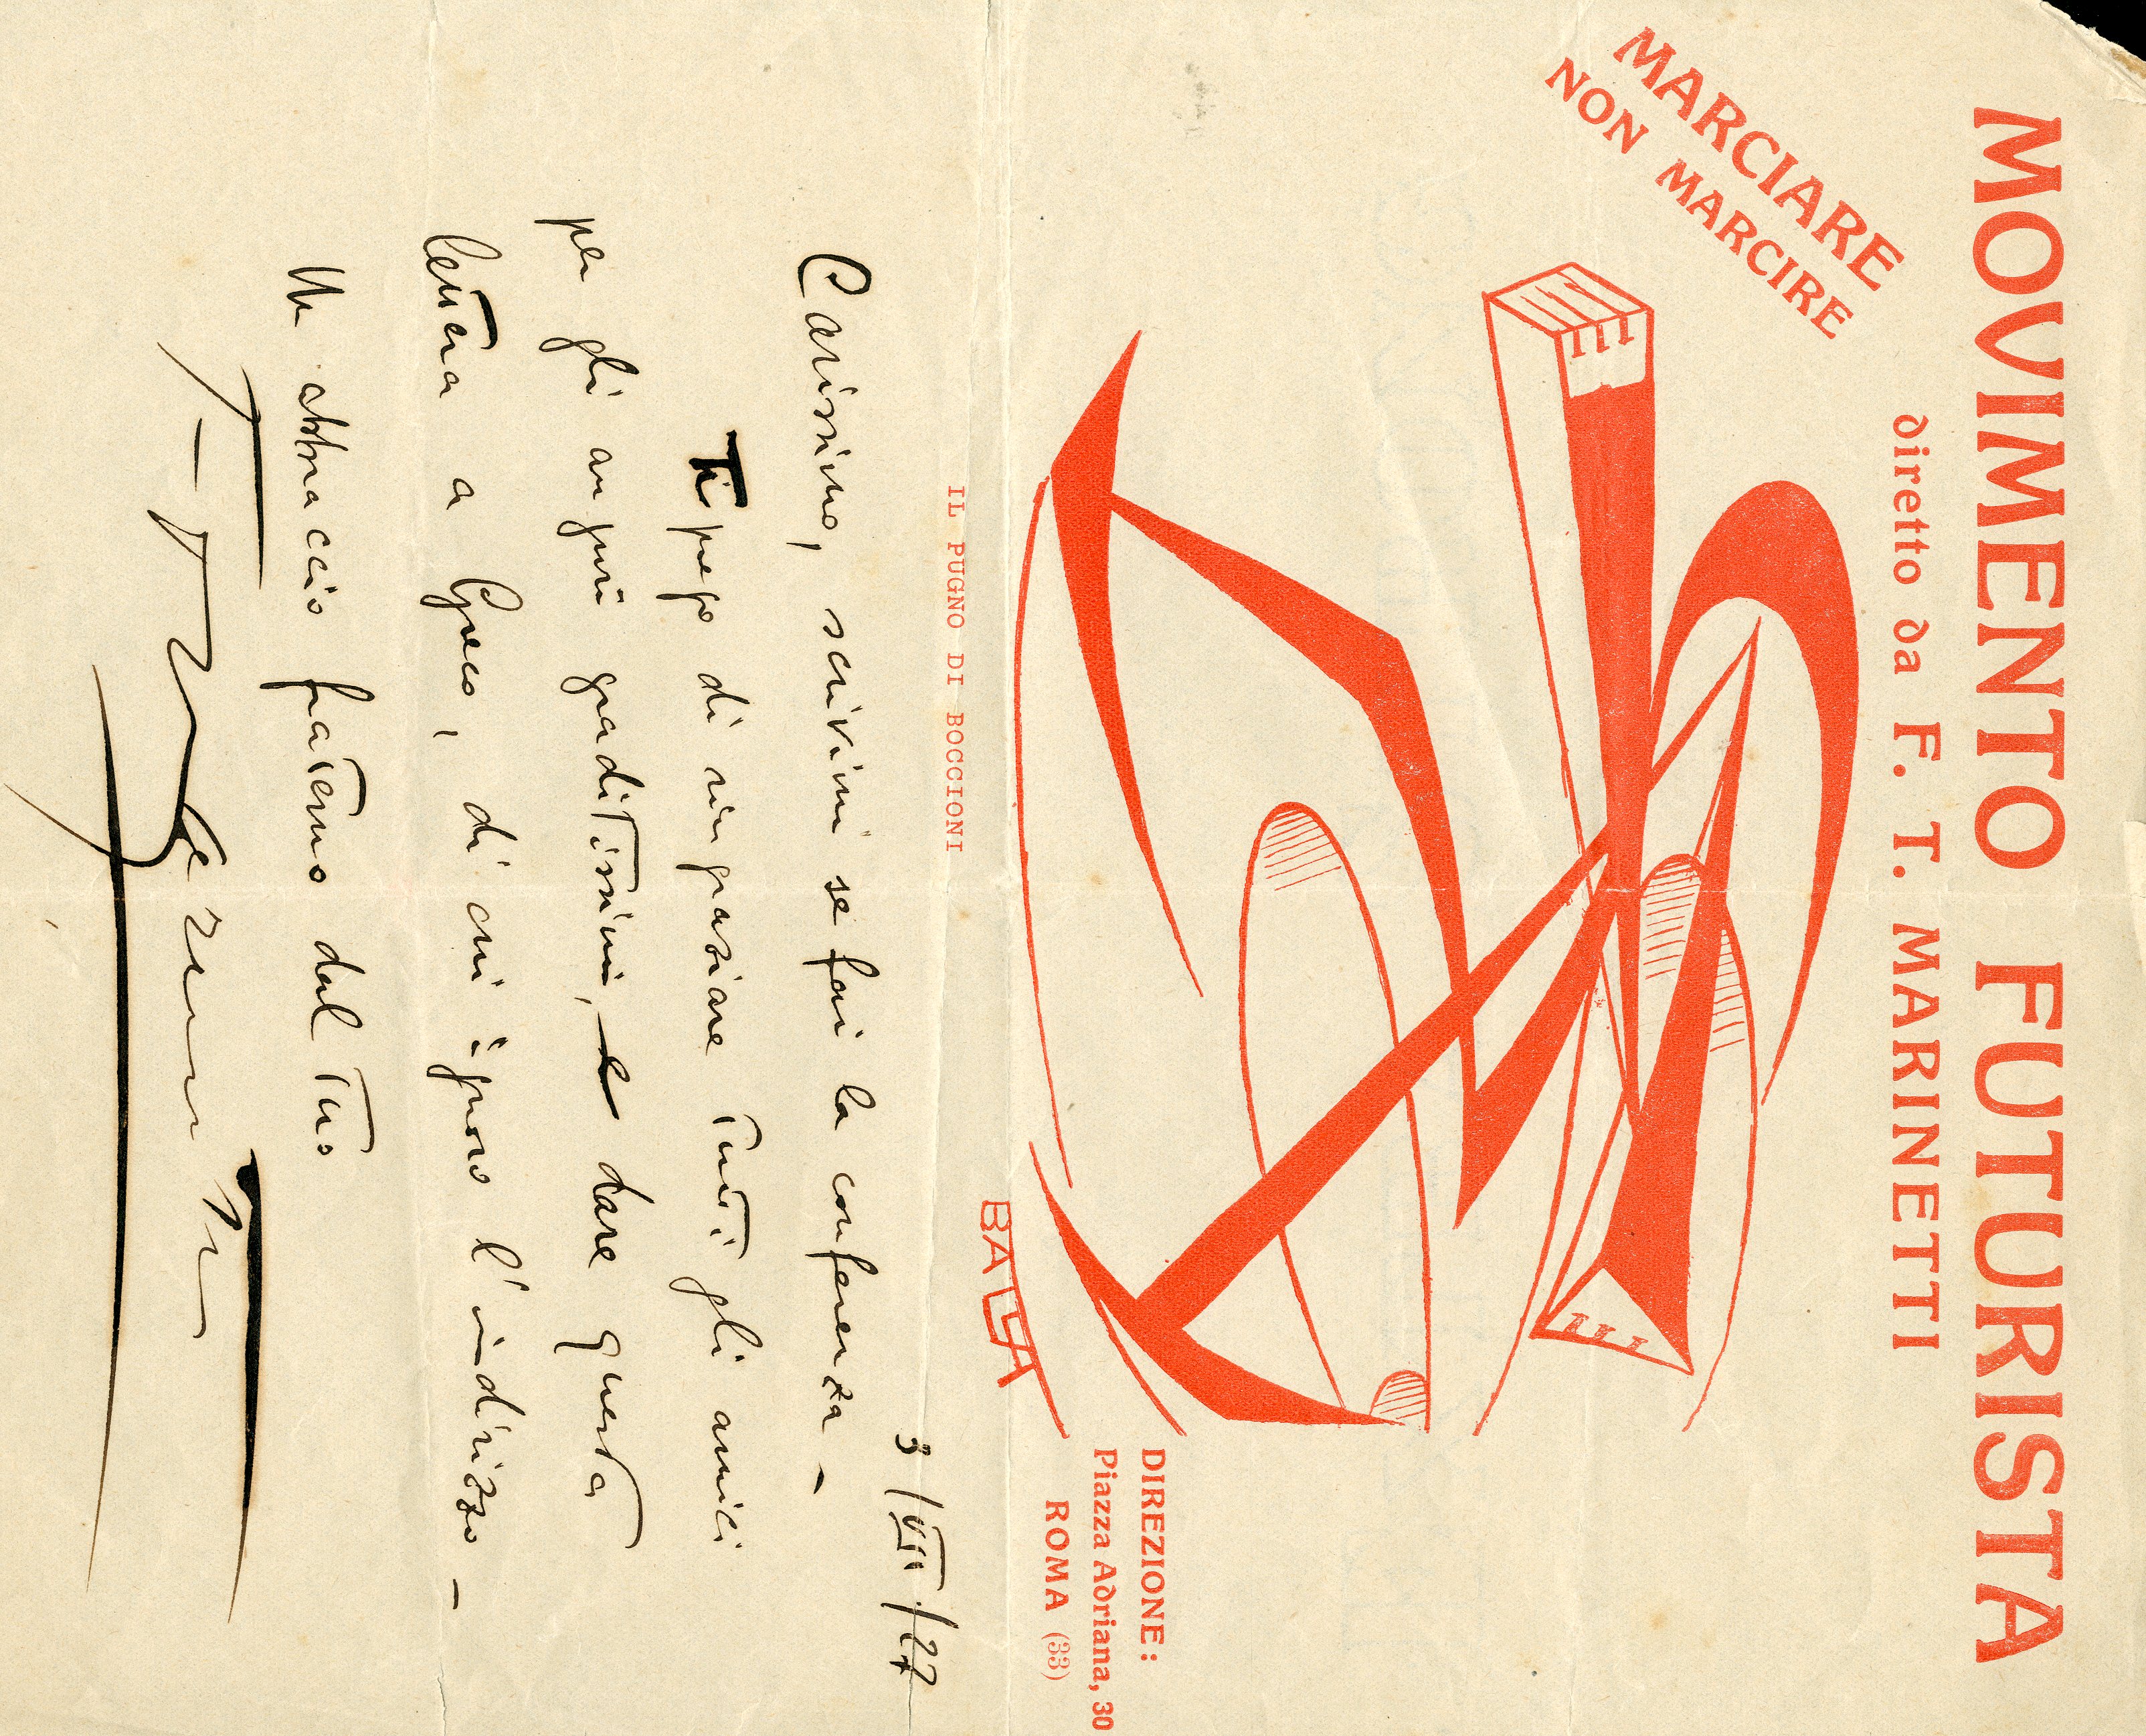 MOVIMENTO FUTURISTA
diretto da F. T. MARINETTI
MARCIARE
NON MARCIRE
DIREZIONE:
Piazza Adriana, 30
ROMA (33)
BALLA
IL PUGNO DI BOCCIONI
3/VII/27
Carissimo, scrivimi se fai la conferenza –
Ti prego di ringraziare tutti gli amici
per gli auguri graditissimi, e dare questa
lettera a Greco, di cui ignoro l'indirizzo –
Un abbraccio fraterno dal tuo